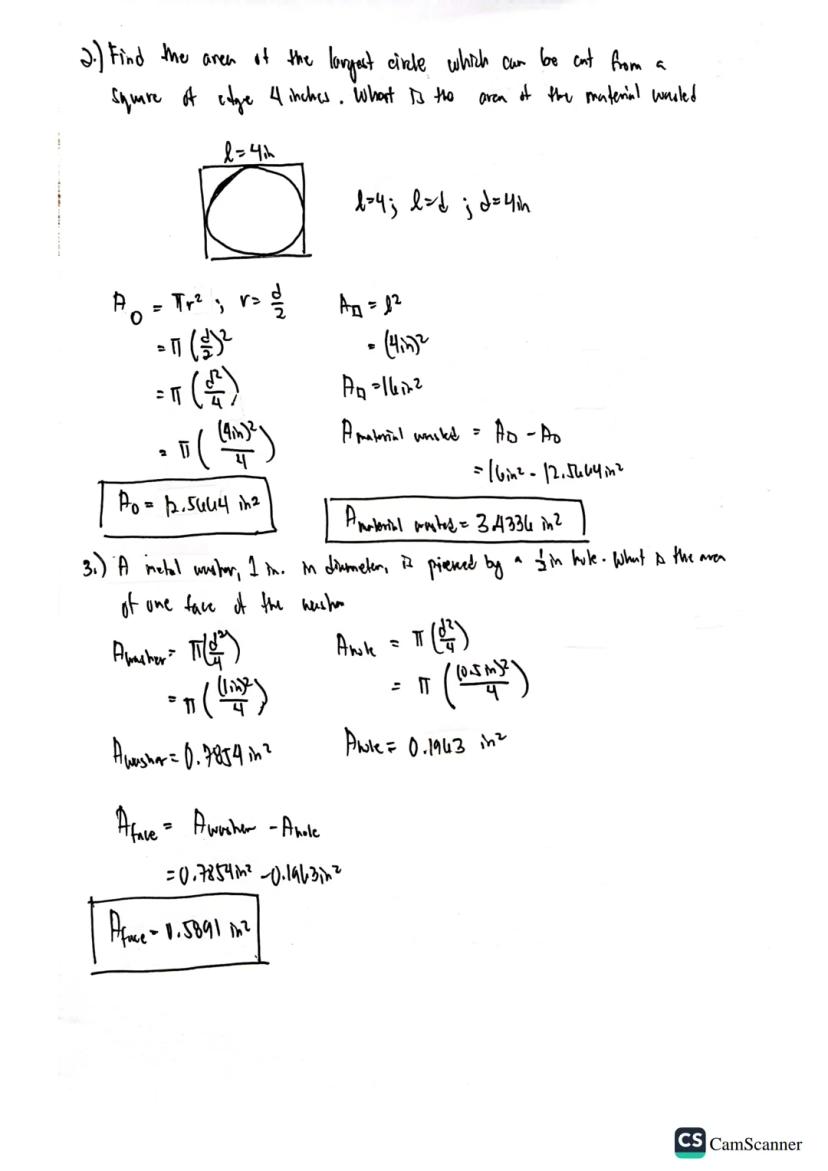 2.) Find the area of the largest circle which can be cut from a
square of edge 4 inches. What is the area of the material wasted
l = 4in
l=4; l=d ; d=4in
A○ = πr² ; r = d/2
= π (d/2)²
= π (d²/4)
= π ((4in)²/4)
A○ = 12.5664 in²
A□ = l²
= (4in)²
A□ = 16in²
A material wasted = A□ - A○
= 16in² - 12.5664in²
A material wasted = 3.4336 in²
3.) A metal washer, 1 in. in diameter, is pierced by a 1/2 in hole. What is the area
of one face of the washer
A washer = π(d²/4)
= π ((1in)²/4)
A washer = 0.7854 in²
A hole = π (d²/4)
= π ((0.5in)²/4)
A hole = 0.1963 in²
A face = A washer - A hole
= 0.7854in² - 0.1963in²
A face = 0.5891 in²
CS CamScanner